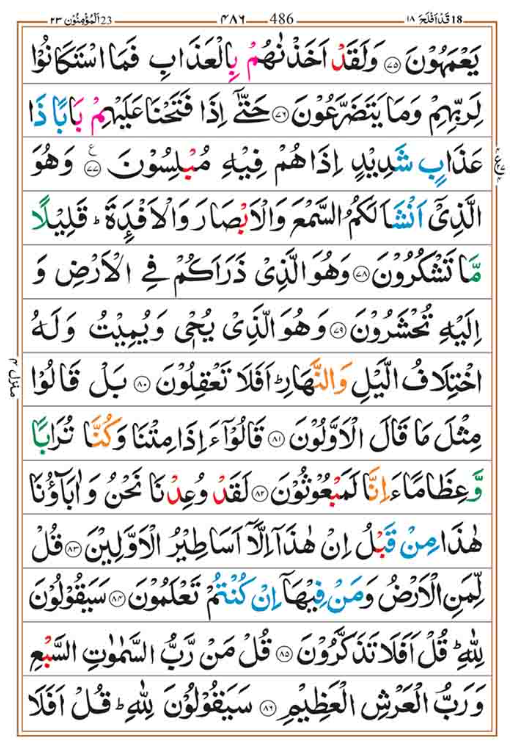 18 قَدْ اَفْلَحَ ١٨ 486 ٤٨٦ 23 اَلْمُؤْمِنُوْن ٢٣
يَعْمَهُوْنَ ﴿٧٥﴾ وَلَقَدْ اَخَذْنٰهُمْ بِالْعَذَابِ فَمَا اسْتَكَانُوْا
لِرَبِّهِمْ وَمَا يَتَضَرَّعُوْنَ ﴿٧٦﴾ حَتّٰٓى اِذَا فَتَحْنَا عَلَيْهِمْ بَابًا ذَا
عَذَابٍ شَدِيْدٍ اِذَا هُمْ فِيْهِ مُبْلِسُوْنَ ﴿٧٧﴾ۧ وَهُوَ
الَّذِيْٓ اَنْشَاَ لَكُمُ السَّمْعَ وَالْاَبْصَارَ وَالْاَفْـِٕدَةَ ؕ قَلِيْلًا
مَّا تَشْكُرُوْنَ ﴿٧٨﴾ وَهُوَ الَّذِيْ ذَرَاَكُمْ فِي الْاَرْضِ وَ
اِلَيْهِ تُحْشَرُوْنَ ﴿٧٩﴾ وَهُوَ الَّذِيْ يُحْيٖ وَيُمِيْتُ وَلَهُ
اخْتِلَافُ الَّيْلِ وَالنَّهَارِ ؕ اَفَلَا تَعْقِلُوْنَ ﴿٨٠﴾ بَلْ قَالُوْا
مِثْلَ مَا قَالَ الْاَوَّلُوْنَ ﴿٨١﴾ قَالُوْٓا ءَاِذَا مِتْنَا وَكُنَّا تُرَابًا
وَّعِظَامًا ءَاِنَّا لَمَبْعُوْثُوْنَ ﴿٨٢﴾ لَقَدْ وُعِدْنَا نَحْنُ وَاٰبَآؤُنَا
هٰذَا مِنْ قَبْلُ اِنْ هٰذَآ اِلَّآ اَسَاطِيْرُ الْاَوَّلِيْنَ ﴿٨٣﴾ قُلْ
لِّمَنِ الْاَرْضُ وَمَنْ فِيْهَآ اِنْ كُنْتُمْ تَعْلَمُوْنَ ﴿٨٤﴾ سَيَقُوْلُوْنَ
لِلّٰهِ ؕ قُلْ اَفَلَا تَذَكَّرُوْنَ ﴿٨٥﴾ قُلْ مَنْ رَّبُّ السَّمٰوٰتِ السَّبْعِ
وَرَبُّ الْعَرْشِ الْعَظِيْمِ ﴿٨٦﴾ سَيَقُوْلُوْنَ لِلّٰهِ ؕ قُلْ اَفَلَا
منزل ٤